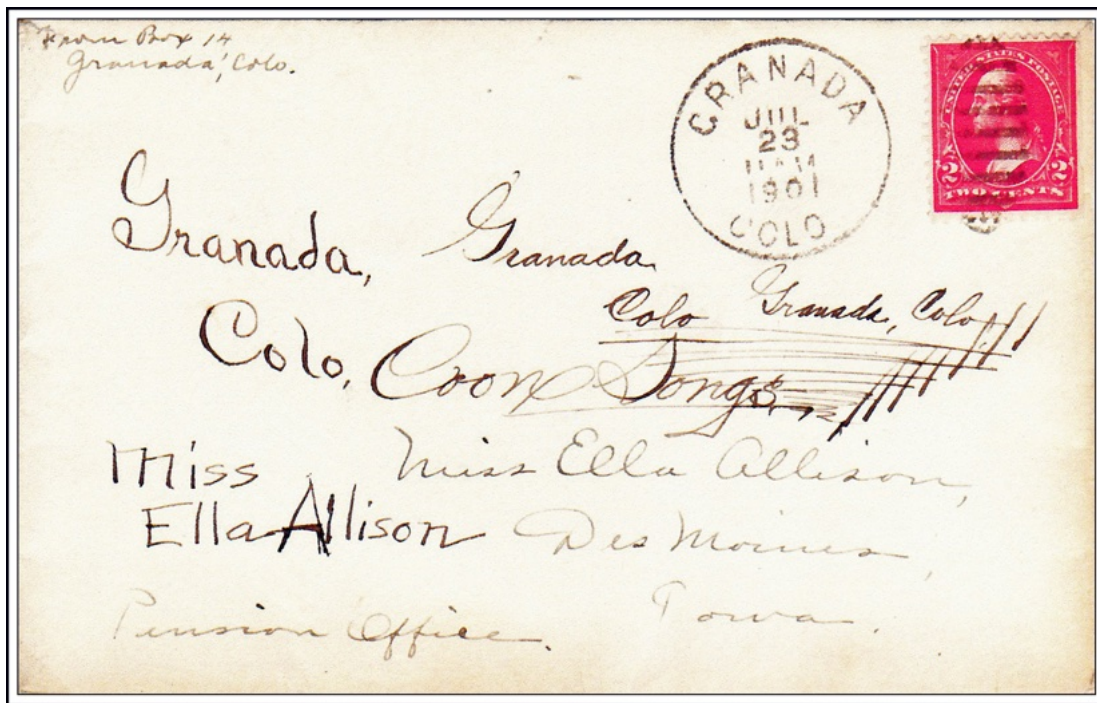 From Box 14
Granada, Colo.
GRANADA
JUL
23
11 AM
1901
COLO
UNITED STATES POSTAGE
2 2
TWO CENTS
Granada,
Colo,
Granada
Colo
Granada, Colo.
Coon Songs
Miss
Ella Allison
Miss Ella Allison,
Des Moines,
Iowa.
Pension Office.